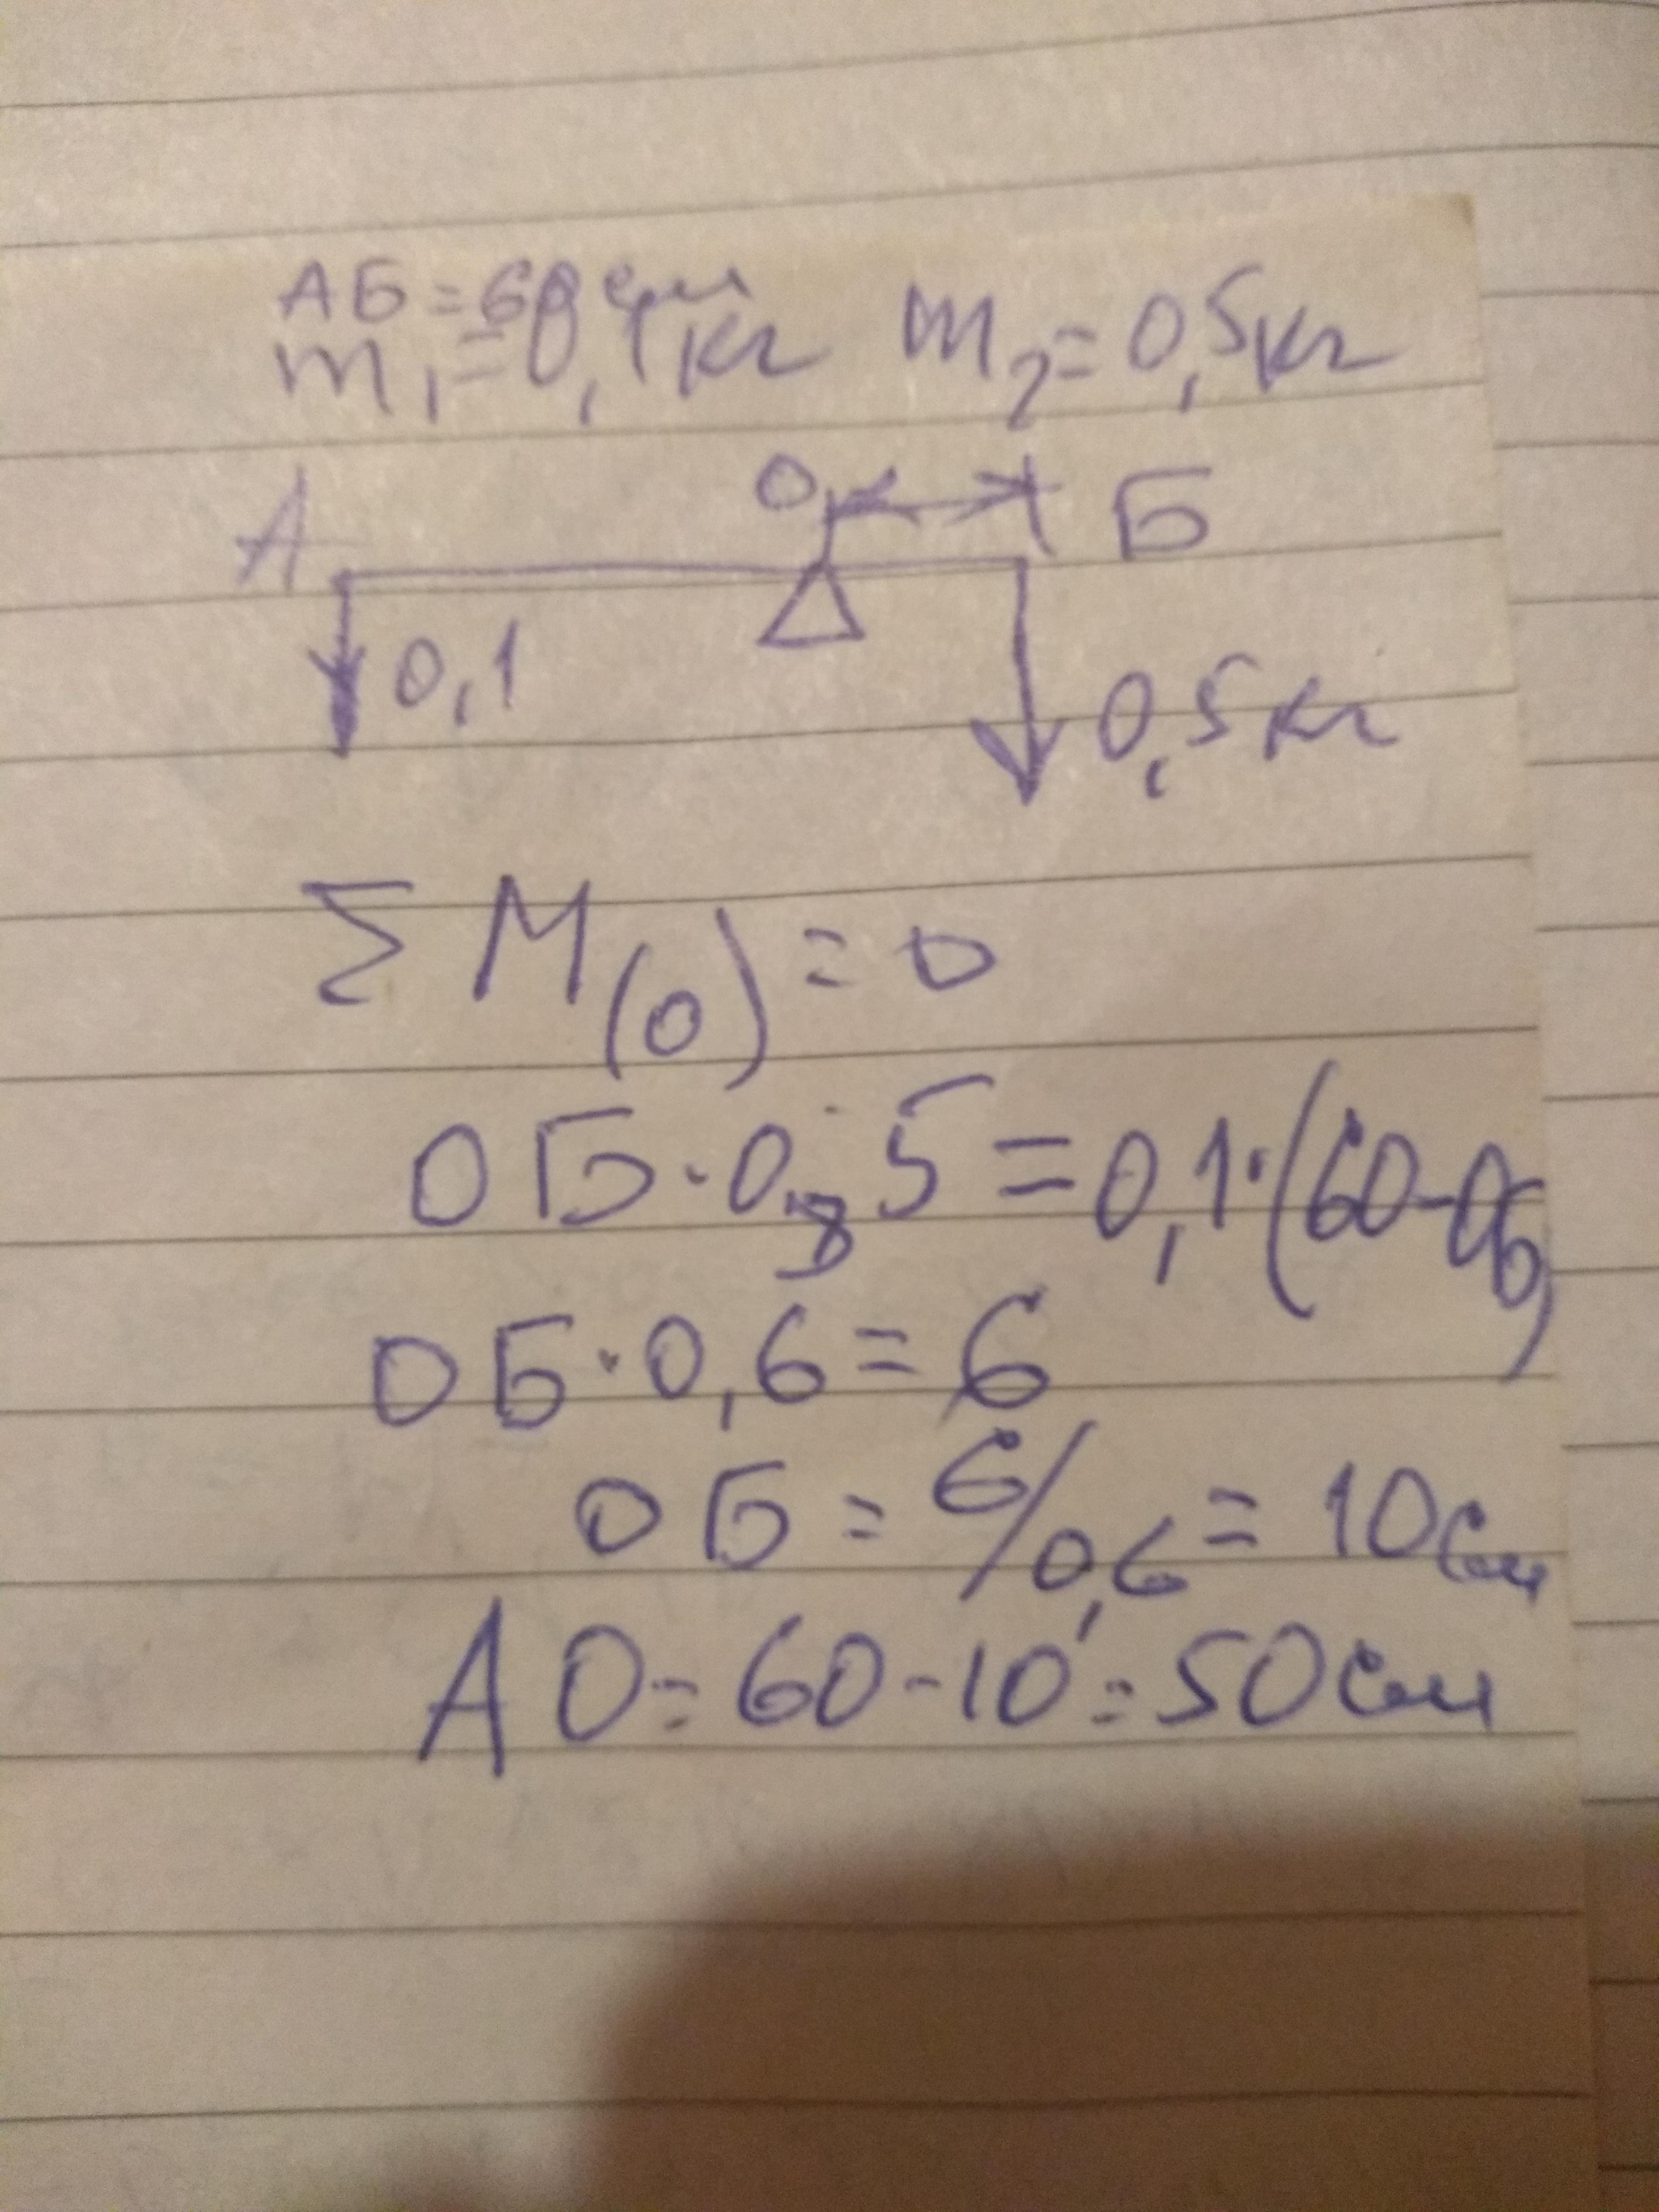 АБ = 60 см
m₁ = 0,1 кг m₂ = 0,5 кг
А О Б
0,1 0,5 кг
Σ M(0) = 0
ОБ · 0,5 = 0,1 · (60 - ОБ)
ОБ · 0,6 = 6
ОБ = 6/0,6 = 10 см
АО = 60 - 10 = 50 см